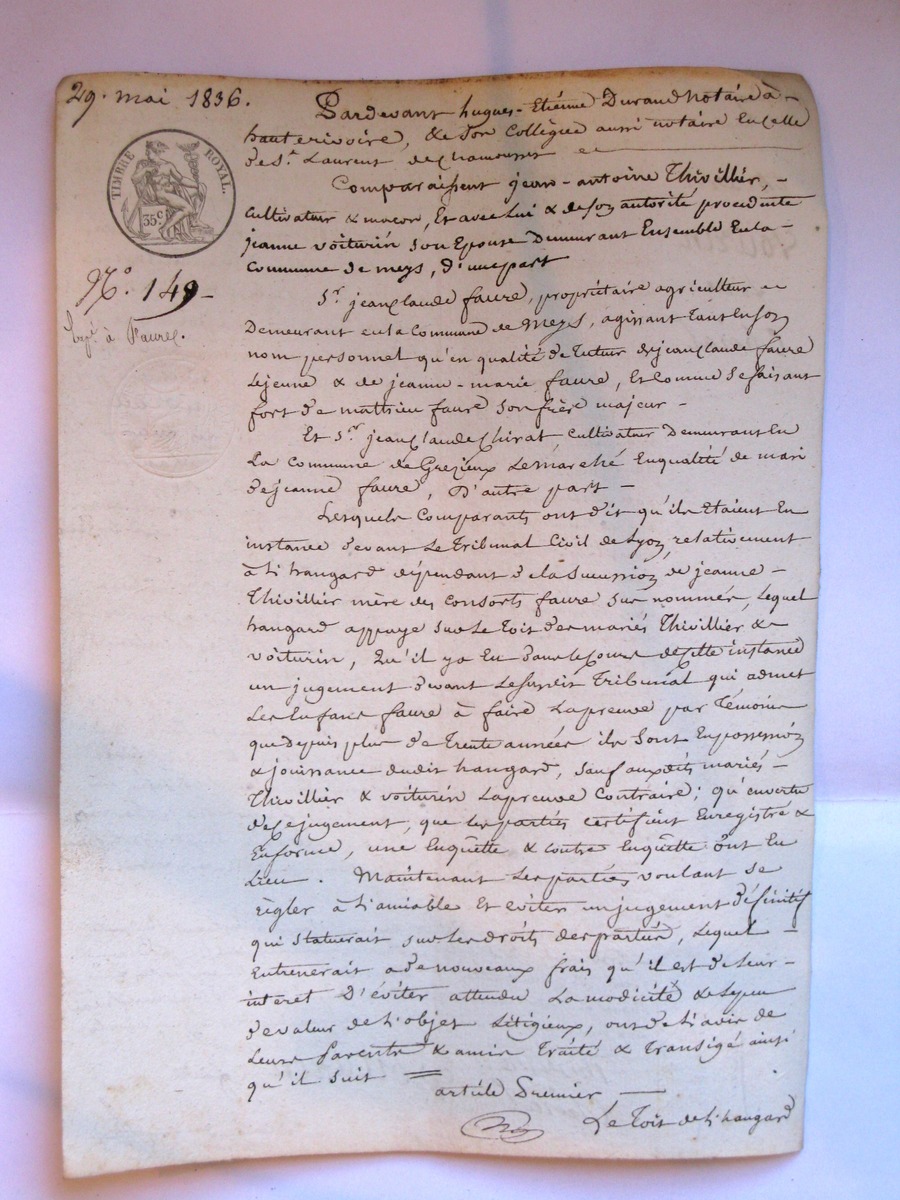 29. mai 1836.
Pardevant hugues-Etiénne Durand Notaire à
hauterivoire, & son Collègue aussi notaire En celle
de St. Laurent de chamousset
TIMBRE ROYAL.
35c
Comparaissent jean-antoine Thivillier, -
Cultivateur & maçon, Et avec Lui & de son autorité procédente
jeanne voiturin son Epouse Demeurant Ensemble En la -
Commune de meys, d'une part
N°. 149 -
Expé. à Faure.
Sr. jean claude faure, propriétaire agriculteur
Demeurant en la Commune de Meys, agissant Tant En son
nom personnel qu'en qualité de Tuteur de jean claude faure
Lejeune & de jeanne-marie faure, Et Comme se faisant
fort de mathieu faure son frère majeur -
Et Sr. jean claude Chirat Cultivateur Demeurant En
La Commune de Grezieux Le marché En qualité de mari
de jeanne faure, D'autre part -
Lesquels Comparants ont dit qu'ils Etaient En
instance devant Le Tribunal Civil de Lyon, relativement
à L'hangard dépendant de la succession de jeanne -
Thivillier mère des Consorts faure sus nommés, Lequel
hangard appuye sur Le Toit des mariés Thivillier &
voiturin, Qu'il y a Eu dans Le cours de cette instance
un jugement devant Le susdit Tribunal qui admet
Les Enfans faure à faire La preuve par Témoins
que depuis plus de Trente années ils sont En possession
& jouissance dudit hangard, sauf auxdits mariés -
Thivillier & voiturin La preuve Contraire; qu'en vertu
de ce jugement, que Les parties certifient Enregistré &
En forme, une Enquête & contre Enquête ont Eu
Lieu. Maintenant Les parties voulant se
règler à L'amiable Et eviter un jugement définitif
qui Statuerait sur Les droits des parties, Lequel -
Entrenerait à de nouveaux frais qu'il est de Leur -
intéret D'éviter attendu La modicité & Le peu
de valeur de L'objet Litigieux, ont de L'avis de
Leurs Parents & amis Traité & Transigé ainsi
qu'il suit
article Premier
Le Toit de L'hangard